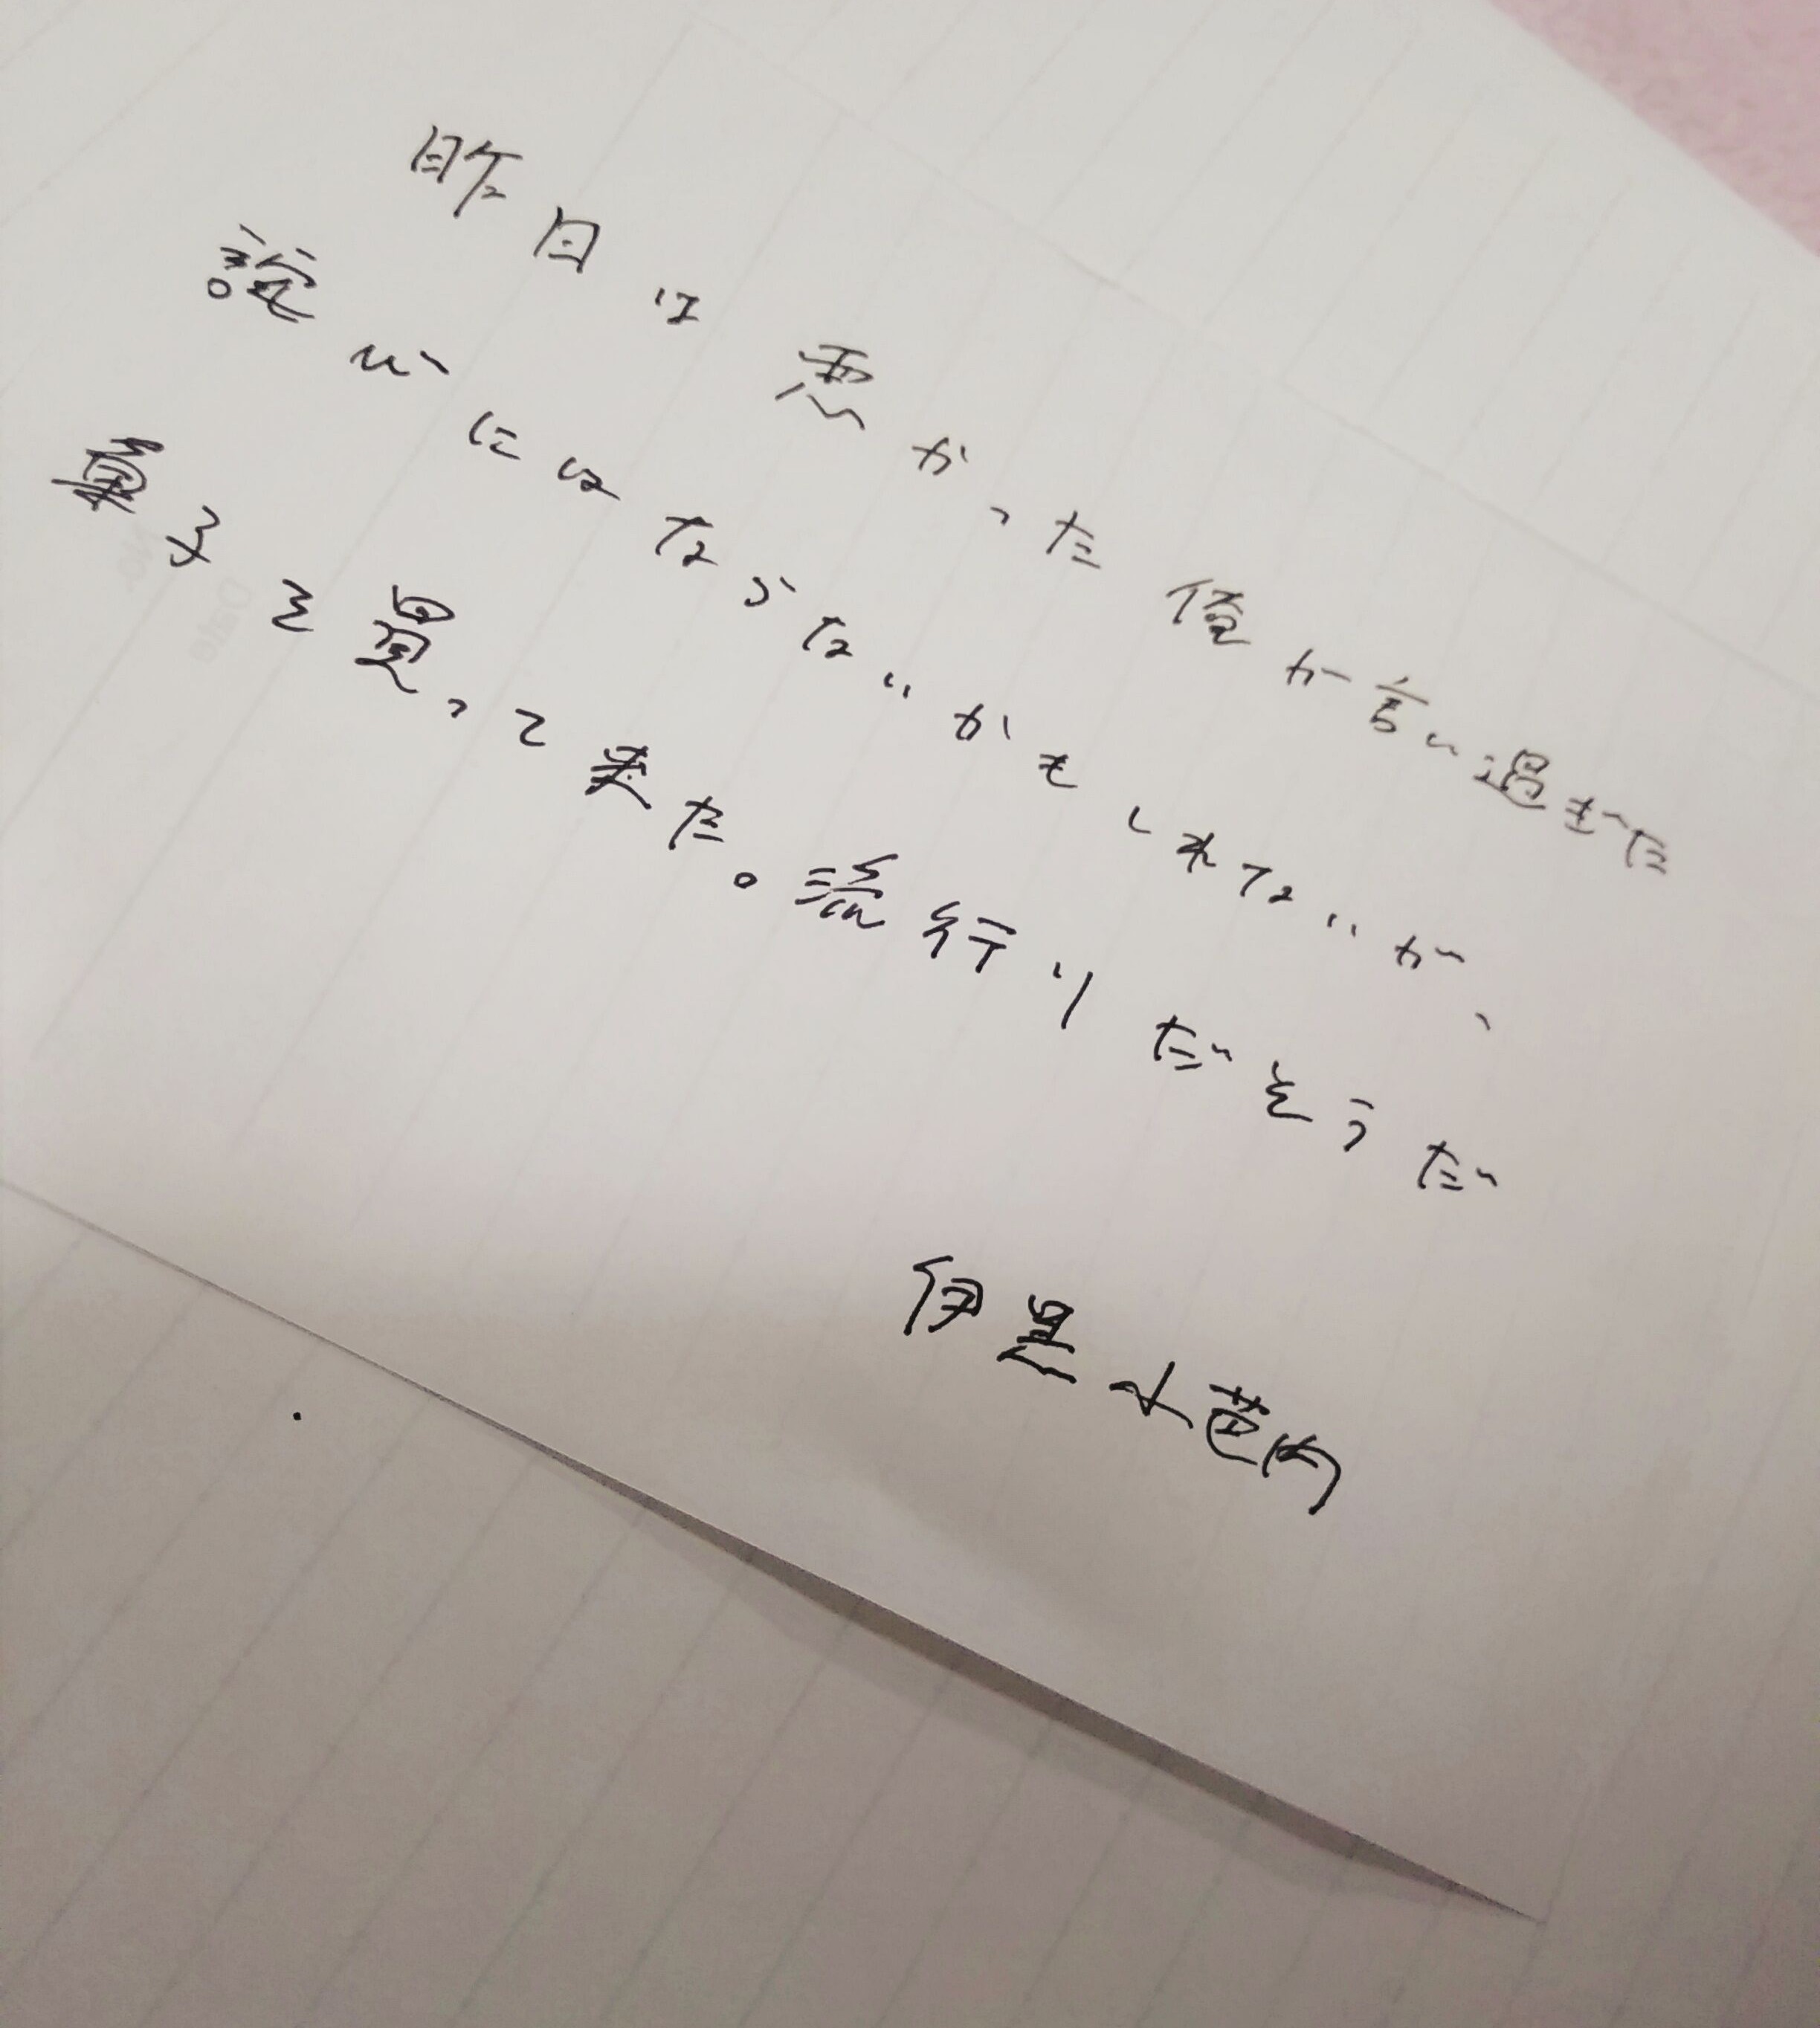 昨日は悪かった俺が言い過ぎた
詫びにはならないかもしれないが、
菓子を買って来た。流行りだそうだ
伊黒小芭内